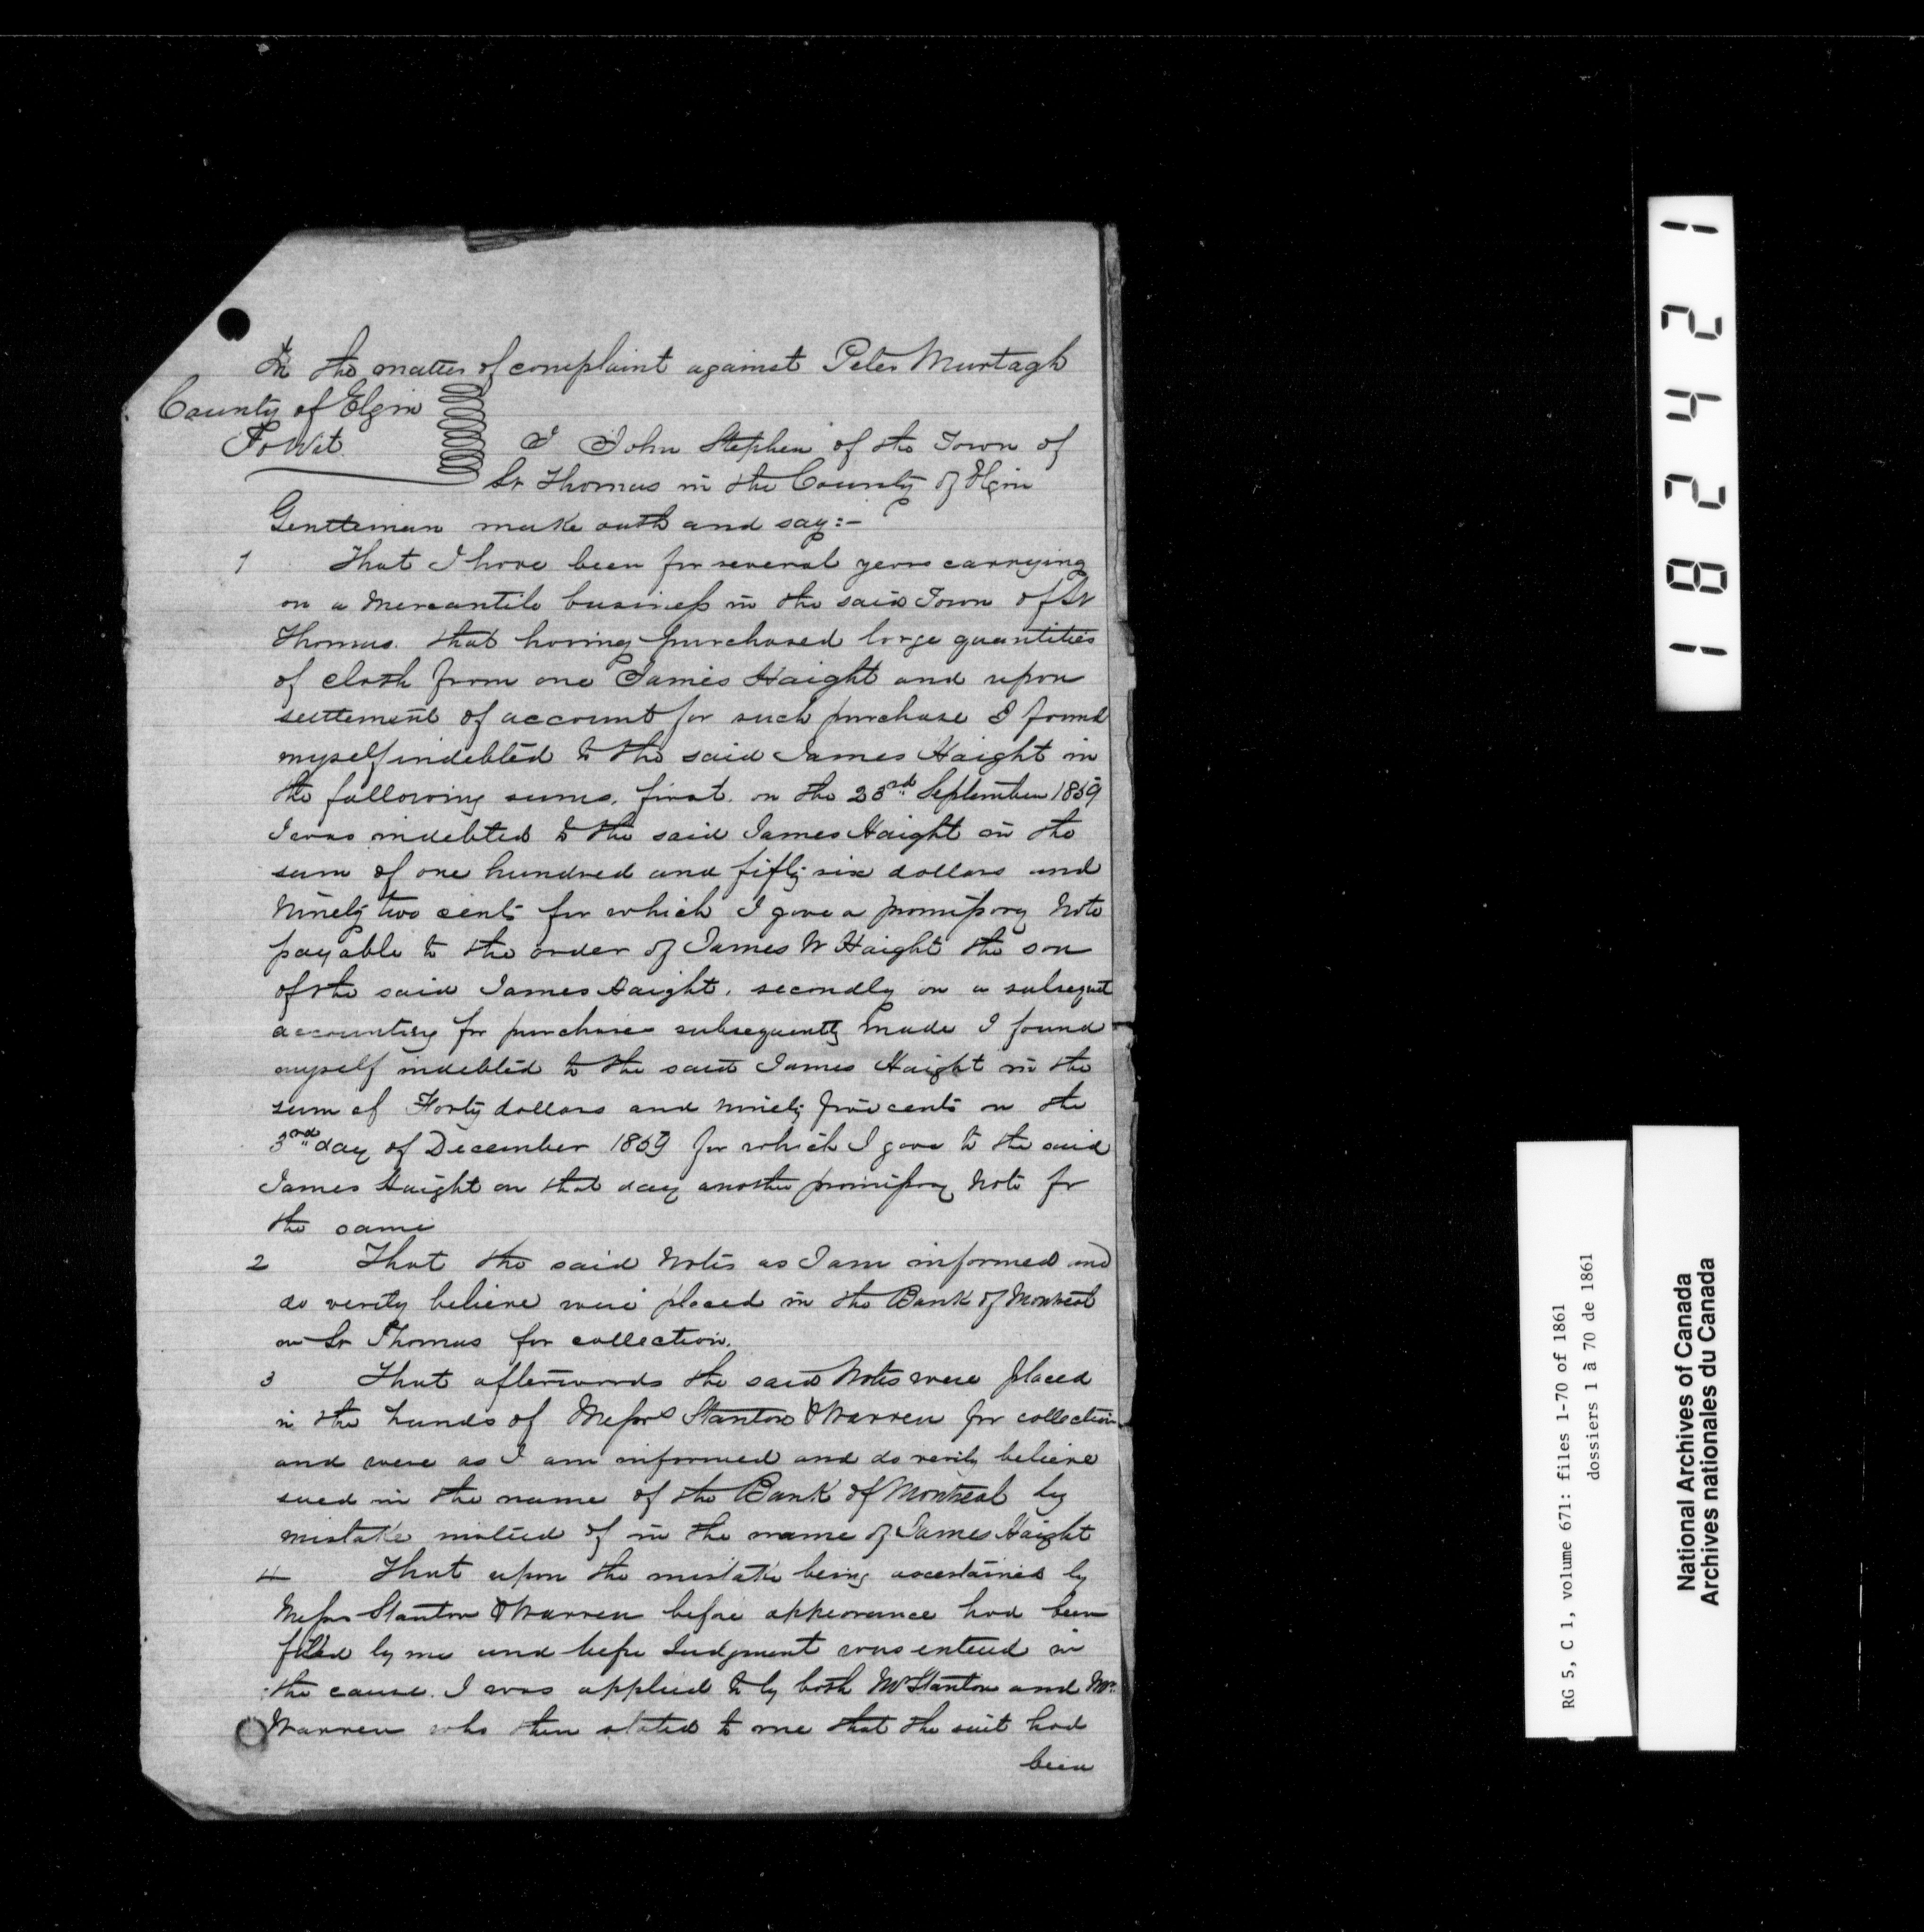 In the matter of complaint against Peter Murtagh
County of Elgin
To Wit.
I John Stephen of the Town of
St Thomas in the County of Elgin
Gentleman make oath and say:-
1 That I have been for several years carrying
on a Mercantile business in the said Town of St
Thomas. that having purchased large quantities
of cloth from one James Haight and upon
settlement of account for such purchase I found
myself indebted to the said James Haight in
the following sums. first. on the 23rd September 1859
I was indebted to the said James Haight in the
sum of one hundred and fifty six dollars and
Ninety two cents for which I gave a promissory Note
payable to the order of James W Haight the son
of the said James Haight. secondly on a subsequt
accounting for purchases subsequently made I found
myself indebted to the said James Haight in the
sum of Forty dollars and ninety five cents on the
3rd day of December 1859 for which I gave to the said
James Haight on that day another promissory Note for
the same
2 That the said Notes as I am informed and
do verily believe were placed in the Bank of Montreal
in St Thomas for collection.
3 That afterwards the said Notes were placed
in the hands of Messrs Stanton & Warren for collection
and were as I am informed and do verily believe
sued in the name of the Bank of Montreal by
mistake instead of in the name of James Haight
4 That upon the mistake being ascertained by
Messrs Stanton & Warren before appearance had been
filed by me and before Judgment was entered in
the cause. I was applied to by both Mr Stanton and Mr.
Warren who then stated to me that the suit had
been
18242 1
RG 5, C 1, volume 671: files 1-70 of 1861
dossiers 1 à 70 de 1861
National Archives of Canada
Archives nationales du Canada